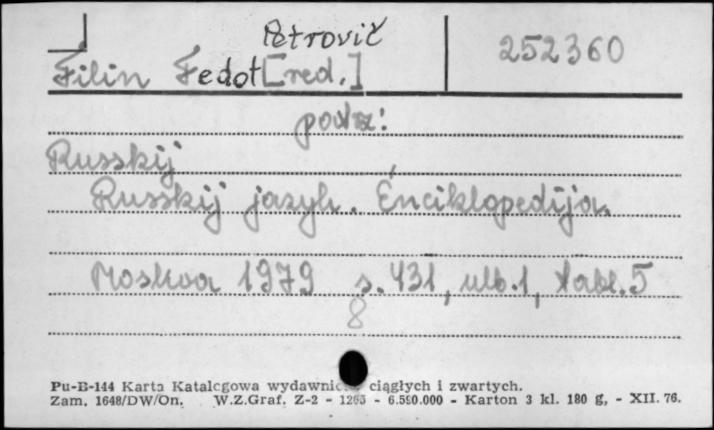 Petrovič
Filin Fedot [red.]
252360
patrz:
Russkij
Russkij jazyk. Ènciklopedija.
Moskva 1979 s. 431, ulb. 1, tabl. 5
8
Pu-B-144 Karta Katalogowa wydawnictw ciągłych i zwartych.
Zam. 1648/DW/On. W.Z.Graf. Z-2 - 1265 - 6.590.000 - Karton 3 kl. 180 g, - XII. 76.